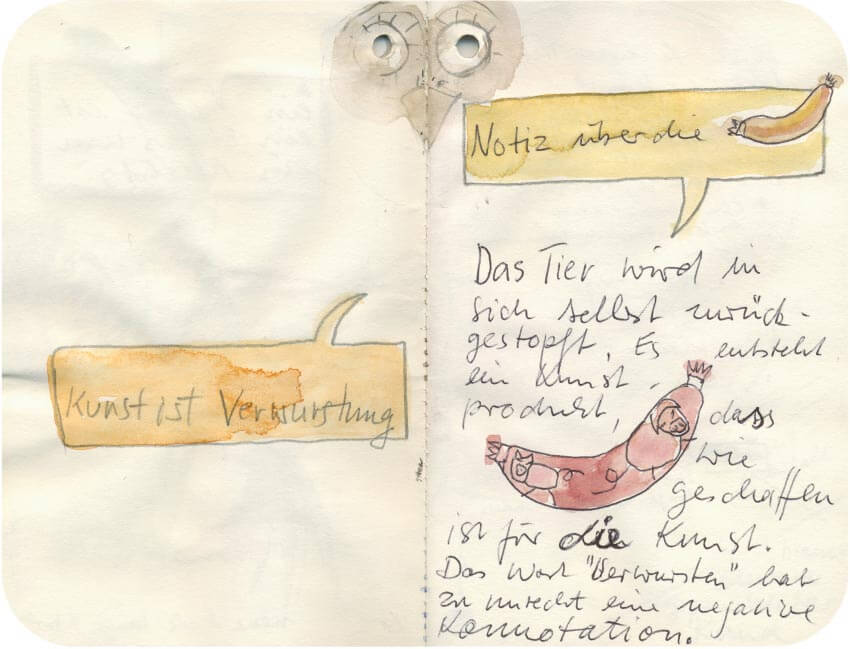 Kunst ist Verwurstung
Notiz über die
Das Tier wird in
sich selbst zurück-
gestopft. Es entsteht
ein Kunst-
produkt, dass
wie
geschaffen
ist für die Kunst.
Das Wort "Verwursten" hat
zu unrecht eine negative
Konnotation.